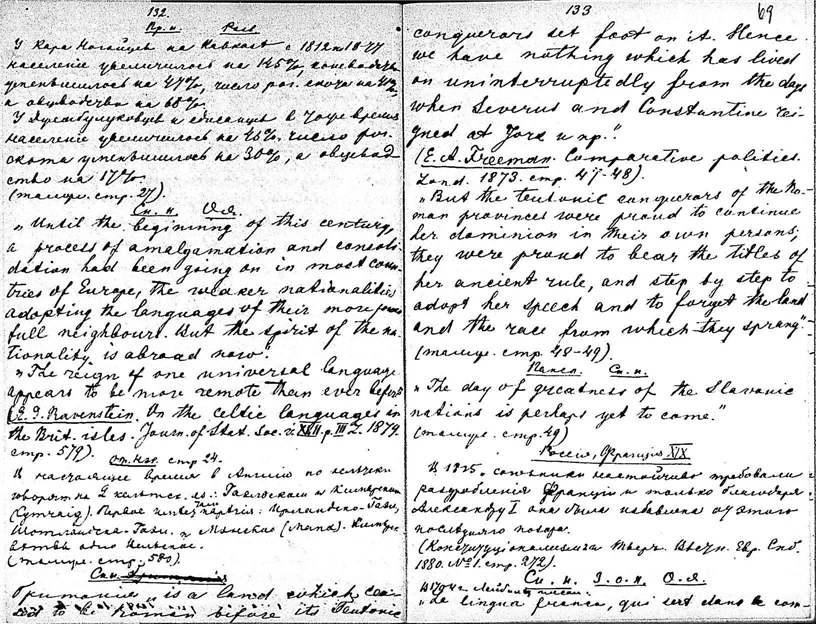 132.
Пр. н. Расв.
У Кара Ногайцев на Кавказе с 1812 и 1877
население увеличилось на 145%, коневодство
уменьшилось на 47%, число рог. скота на
а овцеводство на 68%.
У и в тоже время
население увеличилось на число рог.
скота уменьшилось на 30%, а овцевод
ство на 17%
(там же. стр. 27).
См. н. О.я.
„Until the beginning of this century,
a process of amalgamation and consoli-
dation had been going on in most coun-
tries of Europe, the weaker nationalities
adopting the languages of their more power
full neighbours. But the spirit of the na-
tionality is abroad now.
„The reign of one universal language
appears to be more remote than ever before"
(E. G. Ravenstein. On the celtic languages in
the Brit. isles. Journ. of Stat. Soc. v. XLII. p. III L. 1879.
стр. 579).
стр 24.
В настоящее время в Англии
говорят на 2 кельтс. яз.: Гаэльском и Кимрском
(Cymraig). Первое имеет наречия: Ирландско-Гаэл,
Шотландско-Гаэл. и Мэнское (Manx).
одно
(там же. стр. 580).
См. н.
Британия „is a land which cea-
sed to be Roman before its Teutonic
133
69
conquerors set foot on it. Hence
we have nothing which has lived
on uninterruptedly from the days
when Severus and Constantine rei-
gned at York и пр."
(E. A. Freeman. Comparative politics.
Lond. 1873. стр. 47-48).
„But the teutonic conquerors of the Ro-
man provinces were proud to continue
her dominion in their own persons;
they were proud to bear the titles of
her ancient rule, and step by step to
adopt her speech and to forget the land
and the race from which they sprang"
(там же. стр. 48-49).
Пансл. См. н.
„The day of greatness of the Slavonic
nations is perhaps yet to come."
(там же. стр. 49)
Россія, Франція XIX
В 1815. союзники настойчиво требовали
раздробленія Франціи и только благодаря
Александру I она была избавлена от этого
последняго позора.
(Конституціонализм Вѣстн. Евр. Спб.
1880. № 1. стр. 272).
См. н. З. о н. О. я.
В 1704 г. Лейбниц писал:
„La lingua franca, qui sert dans le com-